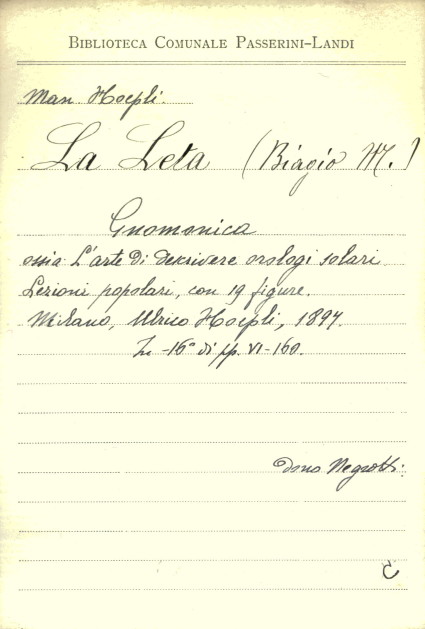 BIBLIOTECA COMUNALE PASSERINI-LANDI
Man. Hoepli.
La Leta (Biagio M.)
Gnomonica
ossia L'arte di descrivere orologi solari
Lezioni popolari, con 19 figure.
Milano, Ulrico Hoepli, 1897.
In -16° di pp. VI-160.
dono Negrotti.
C